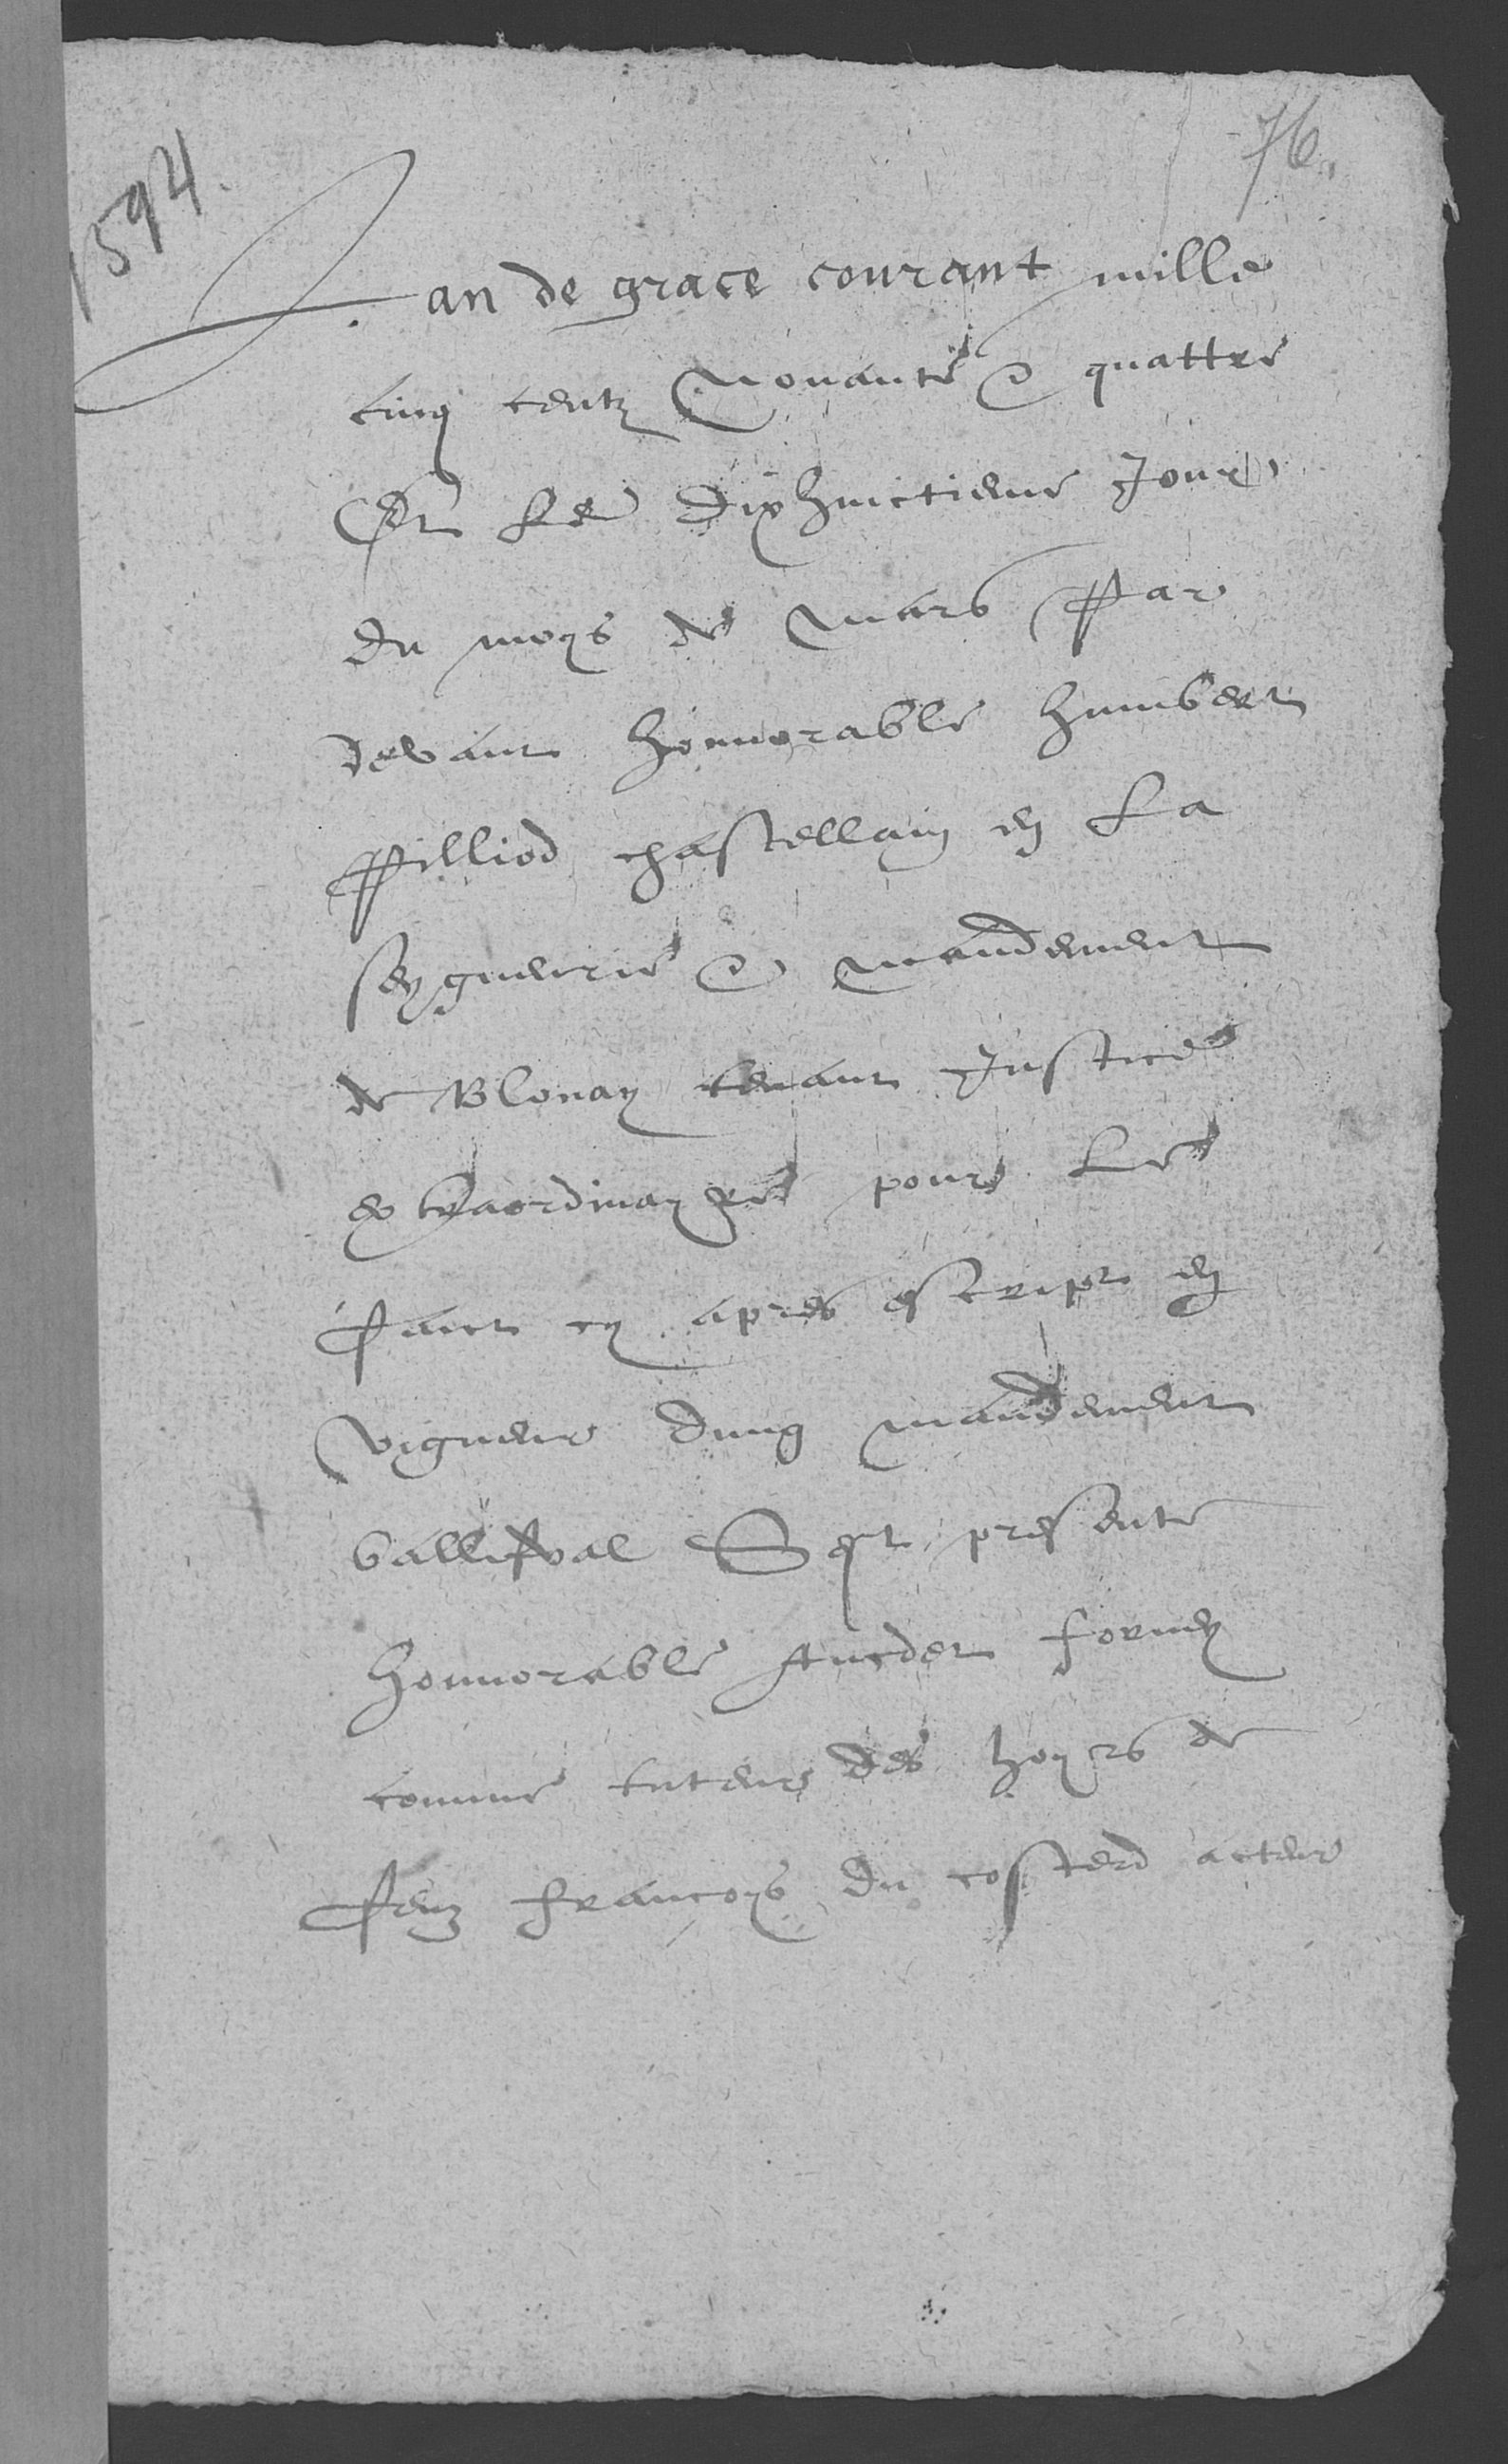 76.
1594.
Lan de grace courant mille
cinq centz Nonante & quattre
Et Le dixhuictieme Jour
du moys de Mars Par
devant honnorable humbert
Pilliod chastellain en La
seygneurie & mandement
de Blonay tenant Justice
extraordinayre pour Le
faict cy apres escript en
vigueur dung mandement
ballifval Sest presente
honnorable Forney
comme tuteur des hoyrs de
feuz francoys du costerd acteur